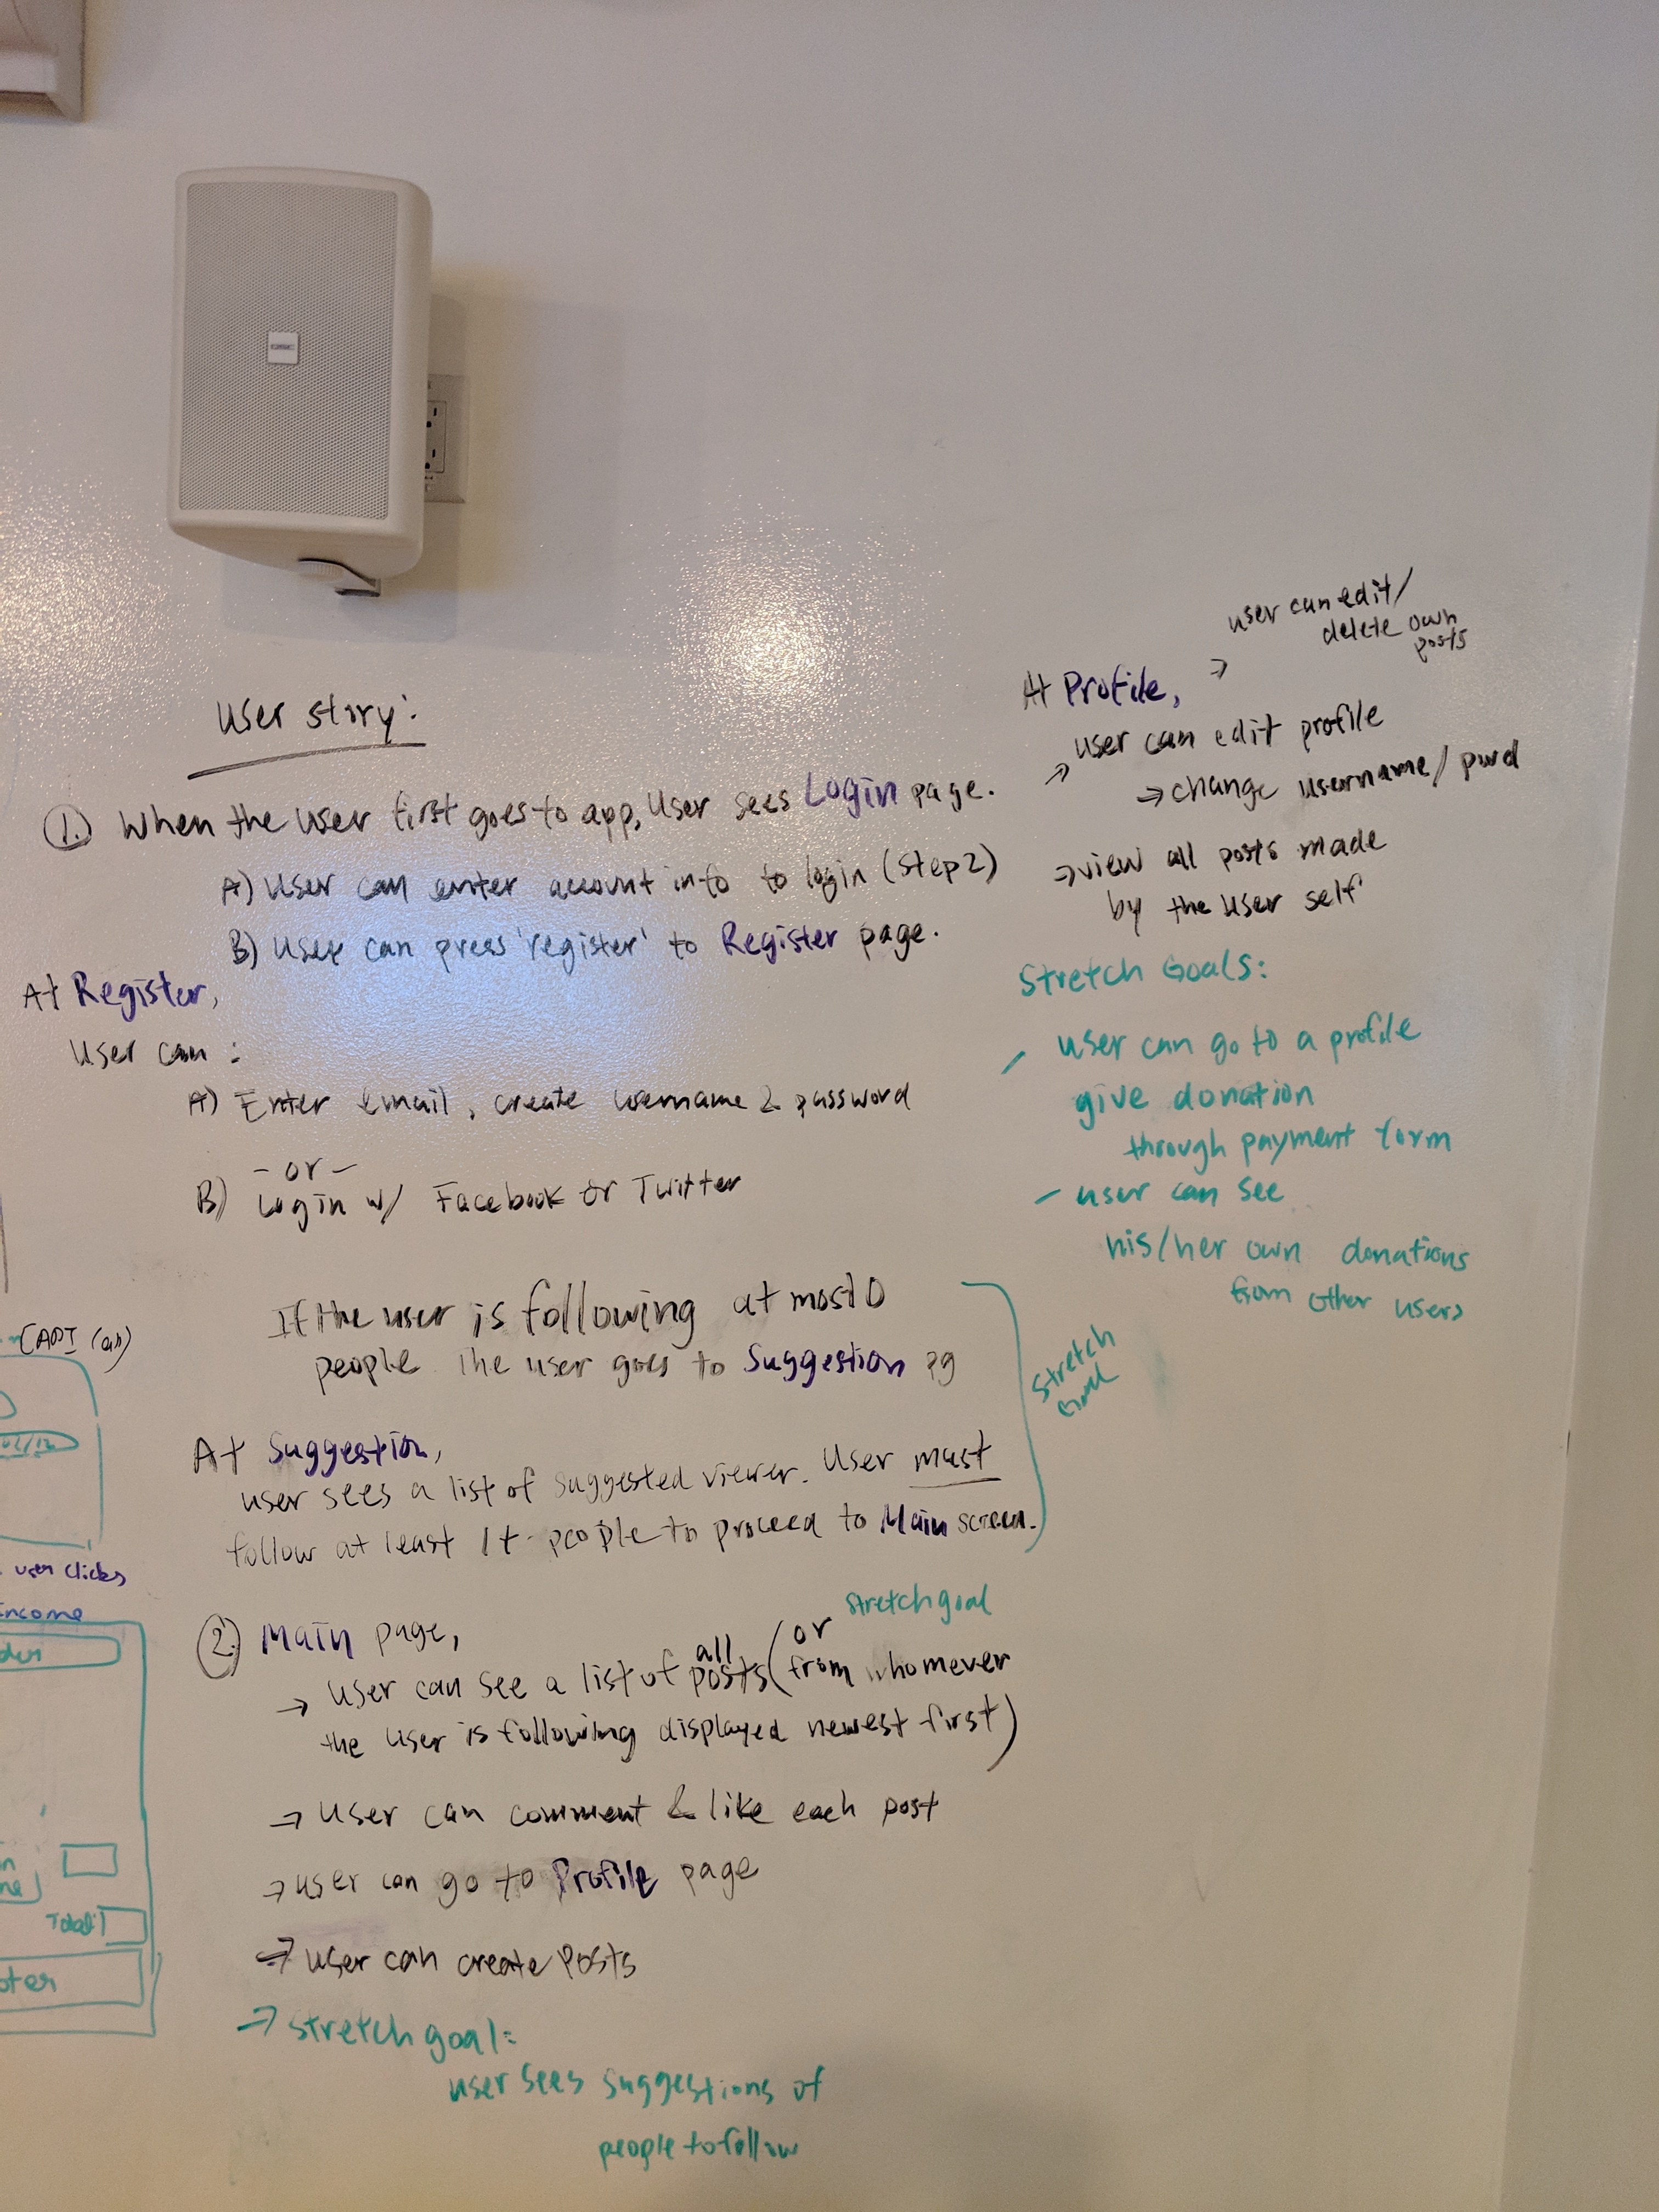 User story:
1. When the user first goes to app, user sees Login page.
A) User can enter account info to login (step 2)
B) User can press 'register' to Register page.
At Register,
User can:
A) Enter email, create username & password
- or -
B) Login w/ Facebook or Twitter
If the user is following at most 0
people the user goes to Suggestion pg
At Suggestion,
user sees a list of suggested viewer. User must
follow at least 1+ people to proceed to Main screen.
stretch
goal
2. Main page,
stretch goal
→ User can see a list of all posts (or from whomever
the user is following displayed newest first)
→ User can comment & like each post
→ user can go to Profile page
→ user can create posts
→ stretch goal:
user sees suggestions of
people to follow
At Profile,
→ user can edit/
delete own
posts
→ user can edit profile
→ change username/pwd
→ view all posts made
by the user self
Stretch Goals:
- user can go to a profile
give donation
through payment form
- user can see
his/her own donations
from other users
user clicks
income
Total: